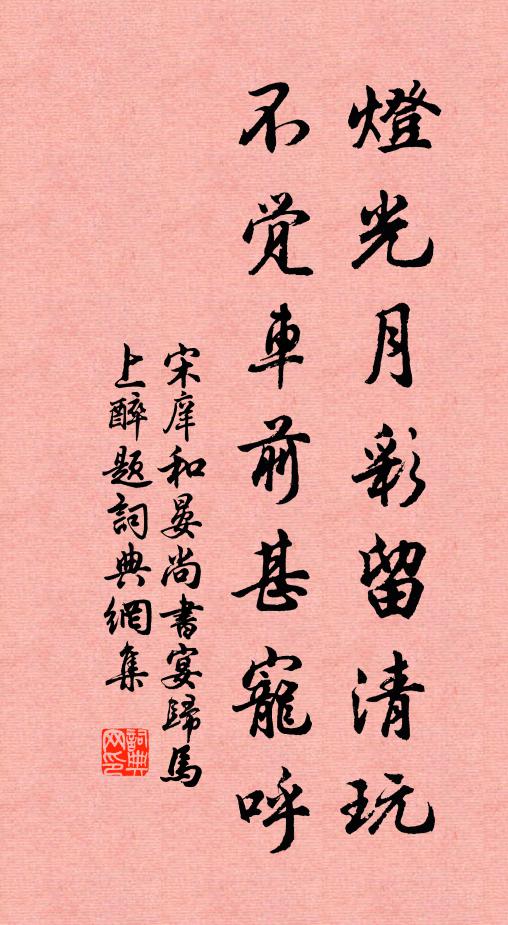 燈光月彩留清玩
不觉車前甚寵呼
宋庠和晏尚書宴歸馬
上醉題詞典網集
詞典
网印